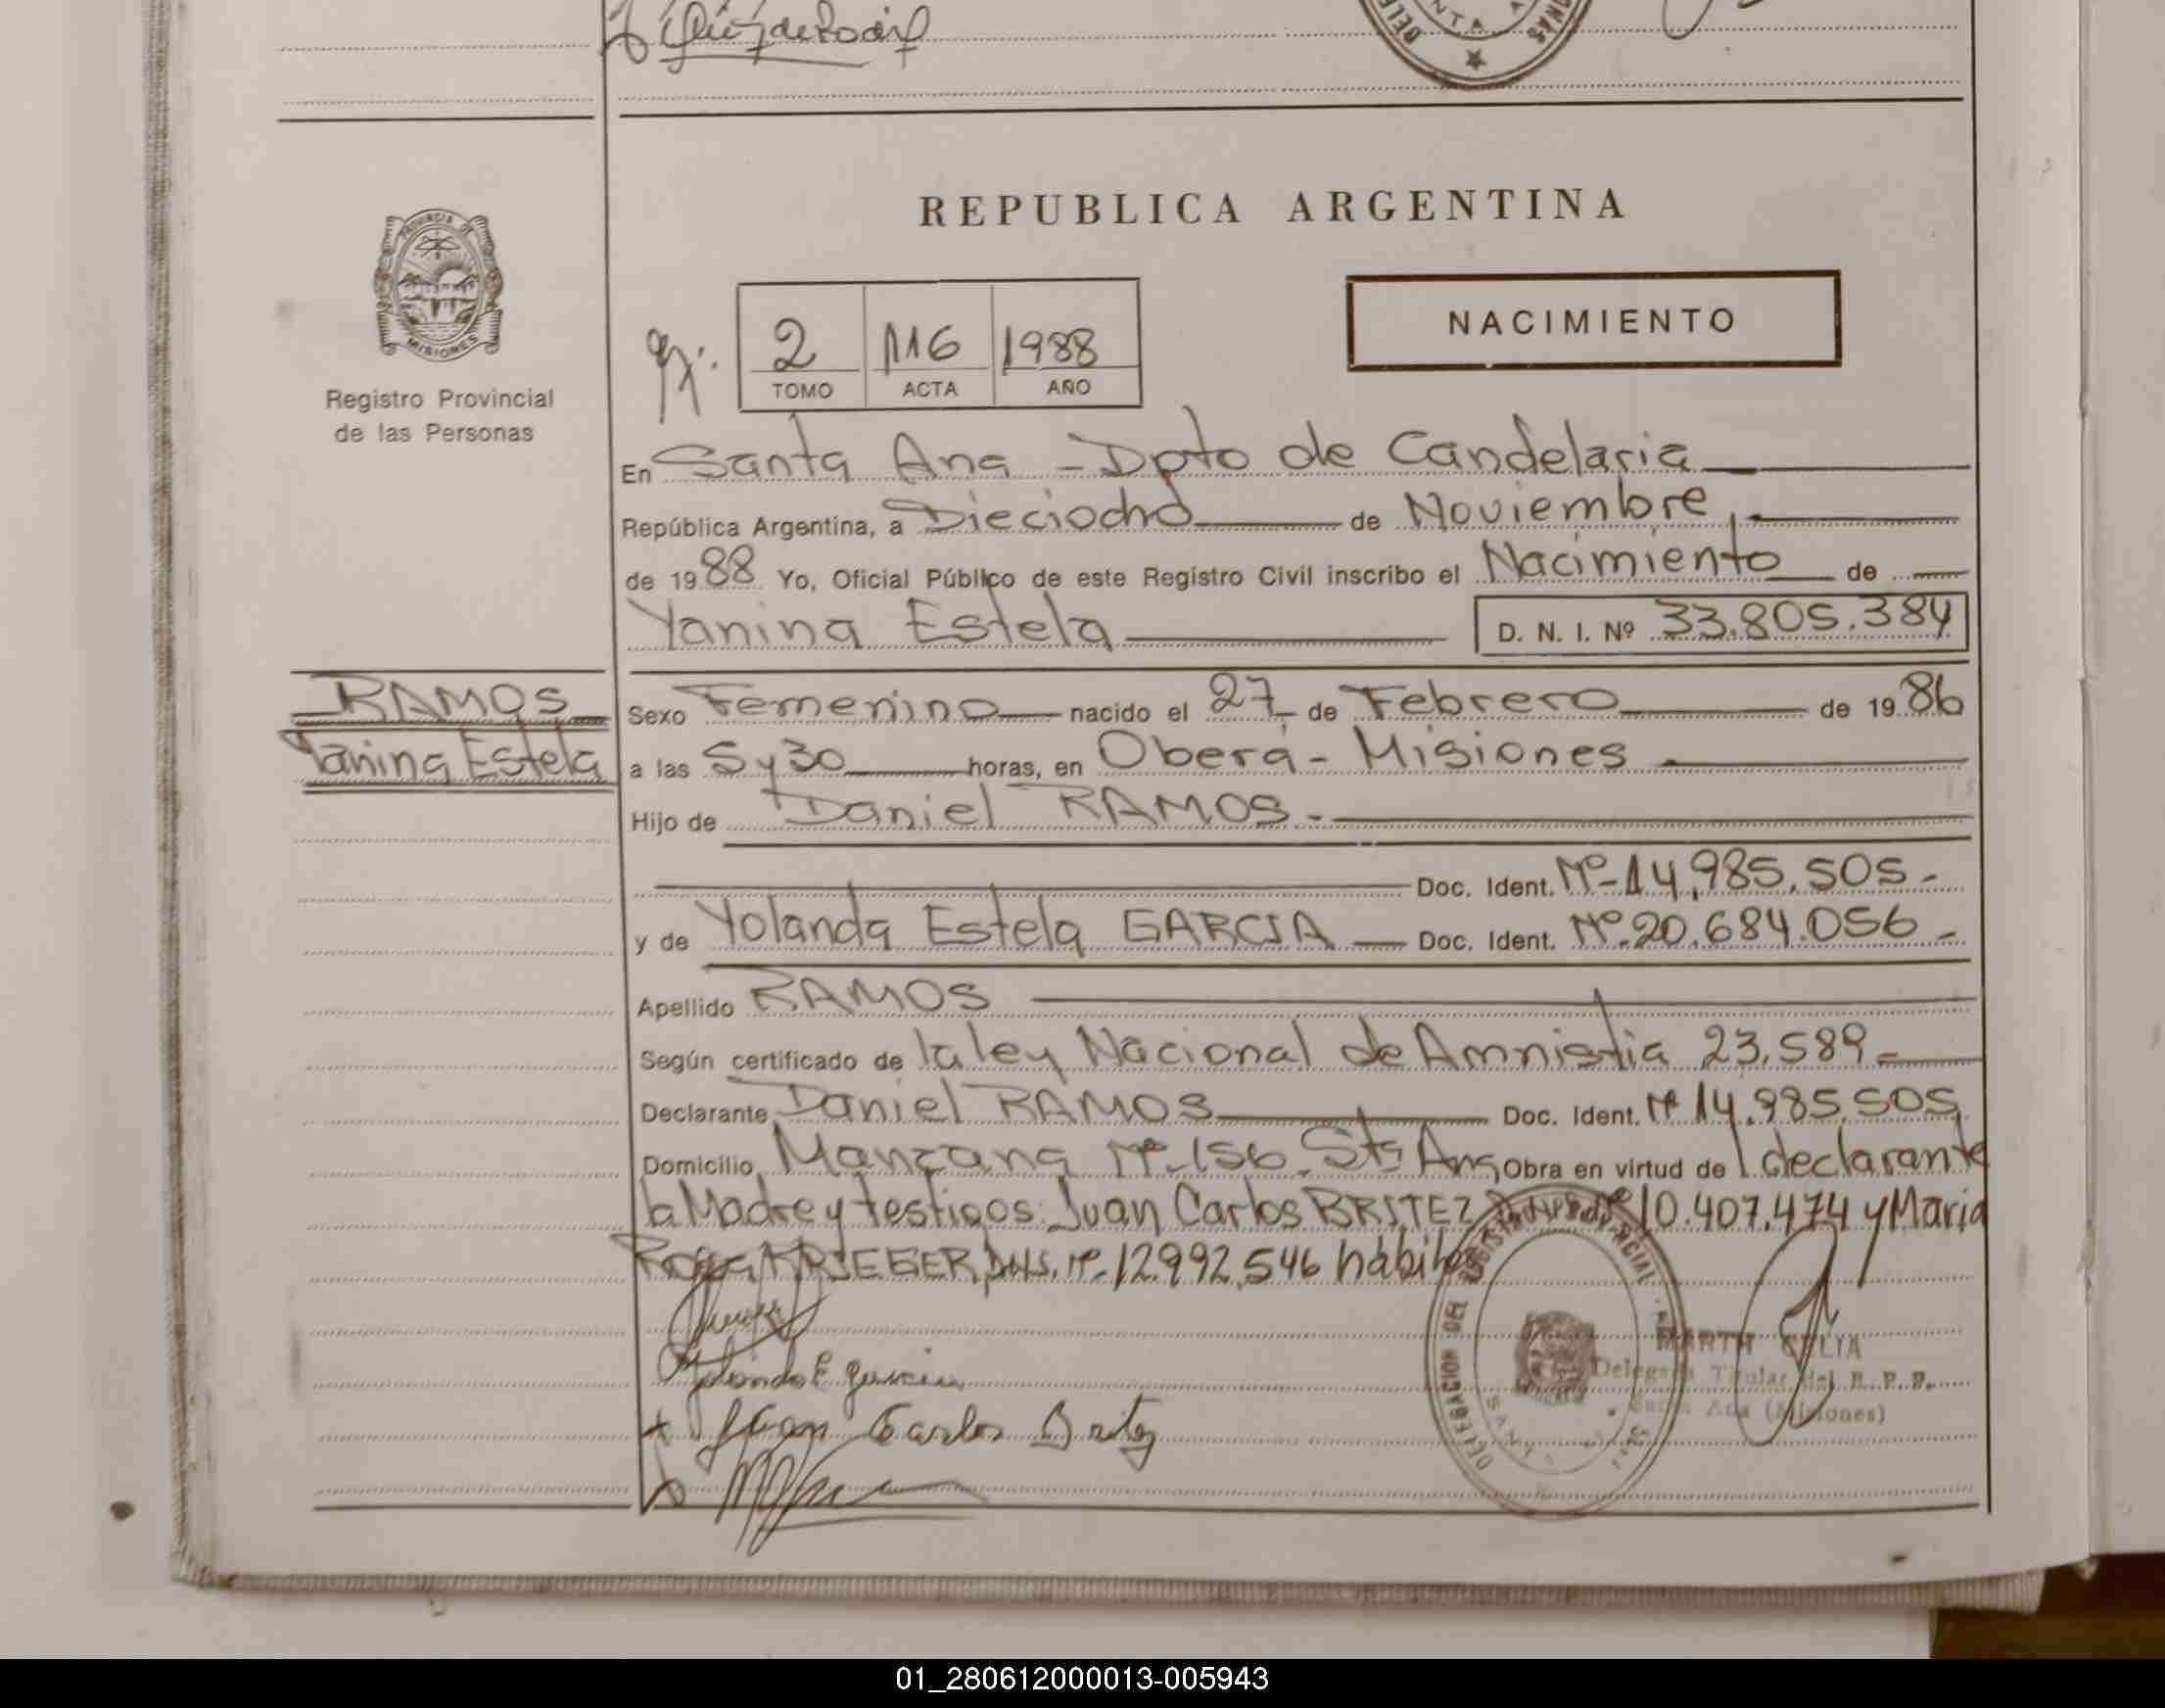 REPUBLICA ARGENTINA
PROVINCIA DE
MISIONES
Registro Provincial
de las Personas
2 116 1988
TOMO ACTA AÑO
NACIMIENTO
En Santa Ana - Dpto de Candelaria
República Argentina, a Dieciocho de Noviembre,
de 1988 Yo, Oficial Público de este Registro Civil inscribo el Nacimiento de
Yanina Estela D. N. I. Nº 33.805.384
RAMOS
Yanina Estela
Sexo Femenino nacido el 27 de Febrero de 1986
a las 5 y 30 horas, en Oberá - Misiones
Hijo de Daniel RAMOS.-
Doc. Ident. Nº-14.985.505.-
y de Yolanda Estela GARCIA Doc. Ident. Nº.20.684.056-
Apellido RAMOS
Según certificado de la ley Nacional de Amnistia 23.589-
Declarante Daniel RAMOS Doc. Ident. Nº 14.985.505
Domicilio Manzana Nº-156. Sta Ana, Obra en virtud de l declarante
la Madre y testigos: Juan Carlos BRITEZ 10.407.474 y Maria
Rosa KRIEGER, DNI. Nº-12.992.546 hábiles
Yolanda E Garcia
Juan Carlos Britez
DELEGACION DEL REGISTRO PROVINCIAL
MARTH CELIA
Delegada Titular del R. P. P.
Santa Ana (Misiones)
01_280612000013-005943